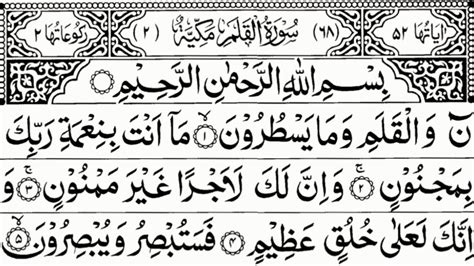 اٰيَاتُهَا ٥٢ (٦٨) سُوْرَةُ الْقَلَمِ مَكِّيَّةٌ (٢) رُكُوْعَاتُهَا ٢
بِسْمِ اللّٰهِ الرَّحْمٰنِ الرَّحِيْمِ
نٓ وَالْقَلَمِ وَمَا يَسْطُرُوْنَ ۙ﴿١﴾ مَاۤ اَنْتَ بِنِعْمَةِ رَبِّكَ
بِمَجْنُوْنٍ ۚ﴿٢﴾ وَاِنَّ لَكَ لَاَجْرًا غَيْرَ مَمْنُوْنٍ ۚ﴿٣﴾ وَ
اِنَّكَ لَعَلٰى خُلُقٍ عَظِيْمٍ ﴿٤﴾ فَسَتُبْصِرُ وَيُبْصِرُوْنَ ۙ﴿٥﴾